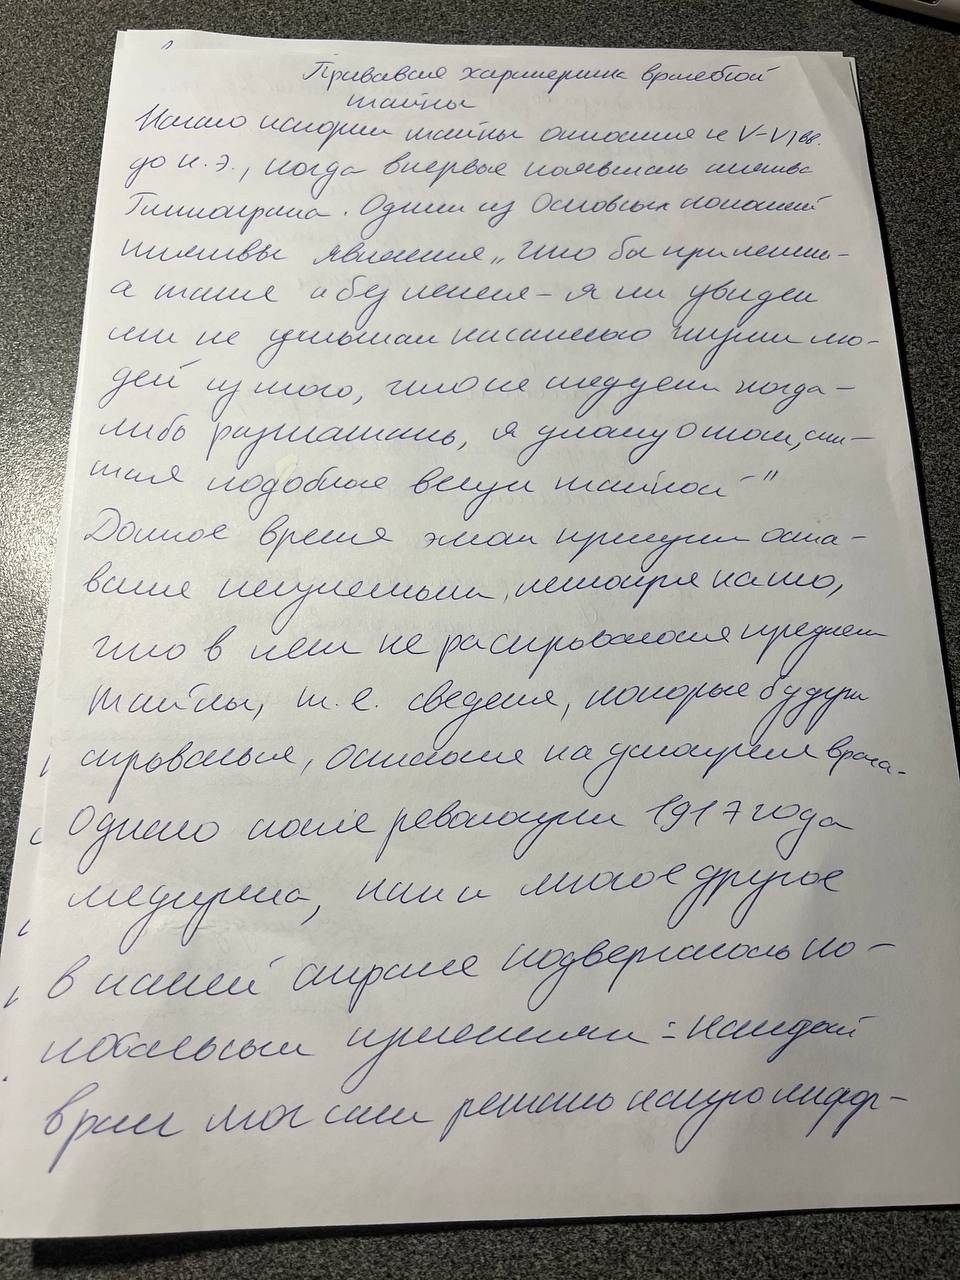 Прававая характеристик врачебной
тайны
Начало истории тайны относится к V-VI вв.
до н.э., когда впервые появилась клятва
Гиппократа. Одним из основных положений
клятвы является „что бы при лечении-
а также и без лечения - я ни увидел
или не услышал касательно жизни лю-
дей из того, что не следует когда-
либо разглашать, я умолчу о том, счи-
тая подобные вещи тайной"
Долгое время этот принцип оста-
вался неизменным, несмотря на то,
что в нем не расскрывался предмет
тайны, т.е. сведения, которые будут
скрываться, остались на усмотрен врача.
Однако после революции 1917 года
медицина, как и многое другое
в нашей стране подвергалось
изменениям : каждый
врач мог сам решать какую инфор-